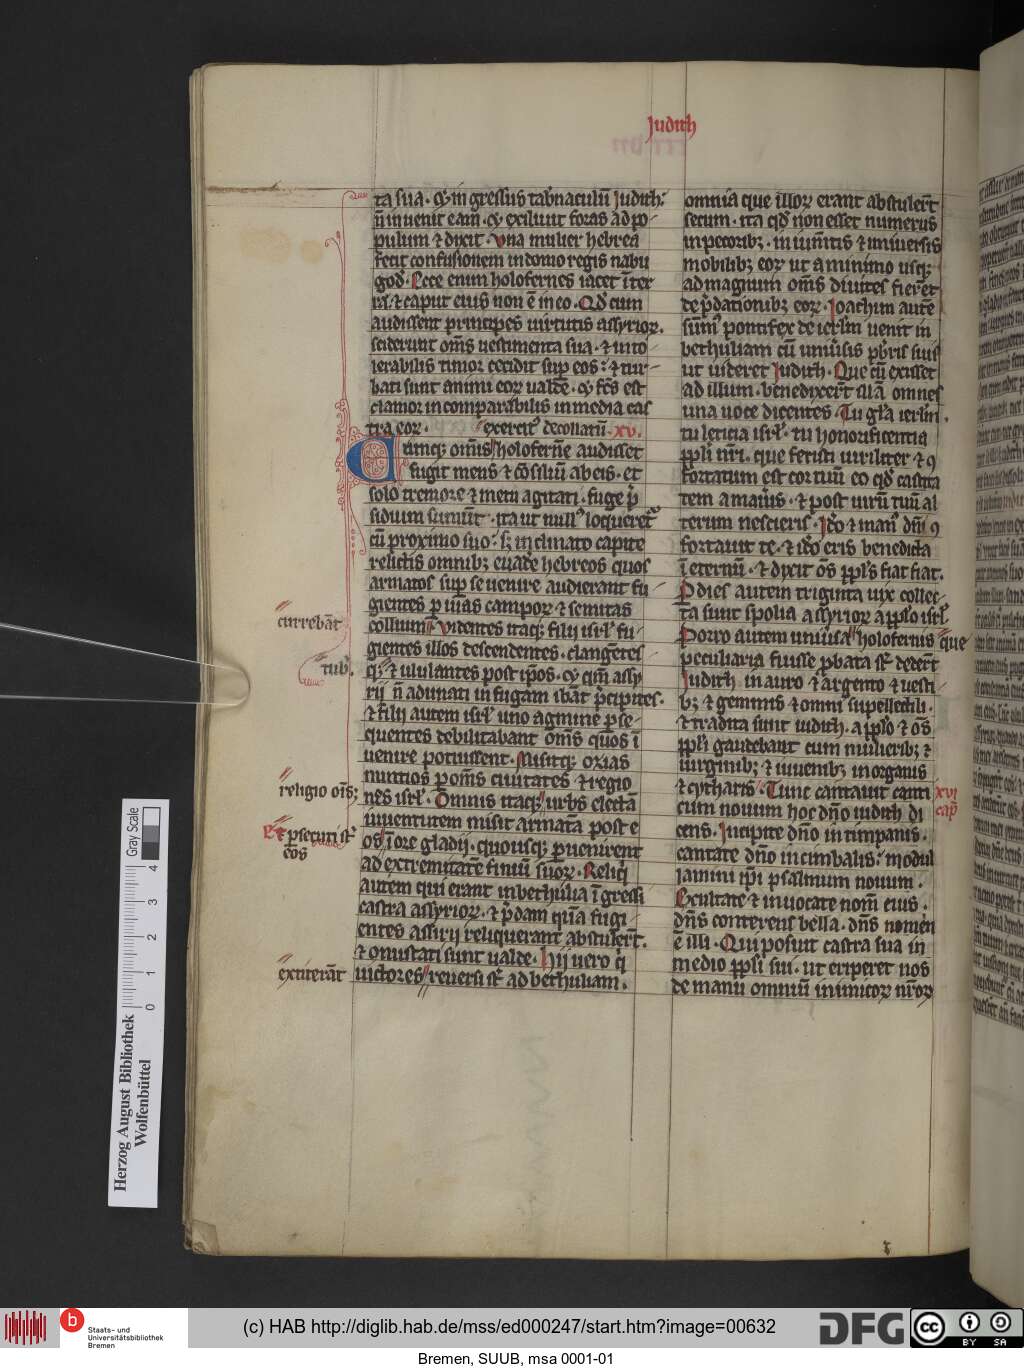 Judith
ta sua · ꝙ in gressus tabˀnaculū Judith:
n̄ in uenit eam · ꝙ exiliuit foras ad po
pulum ⁊ dixit · Vna mulier hebrea
fecit confusionem in domo regis nabu
god᷒ · Ecce enim holofernes iacet ī ter
ra · ⁊ caput eius non ē in eo · Qd̄ cum
audissent principes uirtutis assyrioꝝ ·
sciderunt om̄s uestimenta sua · ⁊ into
lerabilis timor cecidit suꝑ eos : ⁊ tur
bati sunt animi eoꝝ ualde · ꝙ fcs̄ est
clamor in comparabilis in media cas
tra eoꝝ · exercitꝰ decollatū · xv.
Cumqꝫ omīs holoferne audisset
fugit mens ⁊ cōsiliū ab eis · et
solo tremore ⁊ metu agitati · fuge p̄
sidium sumūt · ita ut nullꝰ loqueretᷣ
cū proximo suo : sꝫ in clinato capite
relictis omnibꝫ euade hebreos quos
armatos suꝑ se uenire audierant fu
gientes ꝑ uias campoꝝ ⁊ semitas
collium · Videntes itaqꝫ filii isrl̄ fu
gientes illos descendentes · clangētes
qꝫ ⁊ ululantes post ip̄os · ꝙ qm̄ assy
rii n̄ adunati in fugam ibāt p̄cipites ·
⁊ filii autem isrl̄ uno agmine ꝑse
quentes debilitabant om̄s quos ī
uenire potuissent · Misitqꝫ oxias
nuntios ꝑ om̄s ciuitates ⁊ regio
nes isrl̄ · Omnis itaqꝫ urbs electā
iuuentutem misit armatā post e
os ī ore gladii · quousqꝫ ꝑuenirent
ad extremitatē finiū suoꝝ · Reliqi
autem qui erant in bethulia īgressi
castra assyrioꝝ · ⁊ p̄dam quā fugi
entes assirii reliquerant abstulert̄ ·
⁊ onustati sunt ualde · Hii uero qi
uictores reuersi st̄ ad bethuliam ·
currebāt
tub̄ ·
religio oīs;
Et ꝑsecuti st̄
eos
extiterāt
omnia que illoꝝ erant abstulert̄
secum · ita qd̄ non esset numerus
in pecoribꝫ · in iumt̄is ⁊ uniuersis
mobilibꝫ eoꝝ ut a minimo usqꝫ
ad magnum om̄s diuites fierēt
de p̄dationibꝫ eoꝝ · Joachim autē
sūmꝰ pontifex de ierlm̄ uenit in
bethuliam cū uniūsis pb̄ris suis
ut uideret Judith · Que cū exisset
ad illum · benedixert̄ illā omnes
una uoce dicentes · Tu gl̄a ierlm̄ ·
tu leticia isrl̄ · tu honorificentia
ppl̄i nr̄i · que fecisti uiriliter ⁊ ꝯ
fortatum est cor tuū eo qd̄ castita
tem amaūis · ⁊ post uirū tuū al
terum nescieris · Jd̄o ⁊ manꝰ dn̄i ꝯ
fortauit te · ⁊ id̄o eris benedicta
ī eternū · ⁊ dixit os̄ ppl̄s fiat fiat ·
Ꝑ dies autem triginta uix collec
ta sunt spolia assyrioꝝ a ppl̄o isrl̄
Porro autem uniūsa holofernis que
peculiaria fuisse ꝓbata st̄ dedert̄
Judith in auro ⁊ argento ⁊ uesti
bꝫ ⁊ gemmis ⁊ omni supellectili ·
⁊ tradita sunt iudith · a ppl̄o ⁊ os̄
ppl̄i gaudebant cum mulieribꝫ ⁊
uirginibꝫ ⁊ iuuenibꝫ in organis
⁊ cytharis · Tunc cantauit canti
cum nouum hoc dn̄o iudith di
cens · Jncipite dn̄o in timpanis ·
cantate dn̄o in cimbalis : modul
lamini ip̄i psalmum nouum ·
Excultate ⁊ inuocate nom̄ eius ·
dn̄s conterens bella · dn̄s nomen
ē illi · Qui posuit castra sua in
medio ppl̄i sui · ut eriperet nos
de manu omniū inimicoꝝ nr̄oꝝ
xvi
cap̄
Gray Scale
4
3
2
1
0
Herzog August Bibliothek
Wolfenbüttel
b
Staats- und
Universitätsbibliothek
Bremen
(c) HAB http://diglib.hab.de/mss/ed000247/start.htm?image=00632
DFG
cc
BY SA
Bremen, SUUB, msa 0001-01